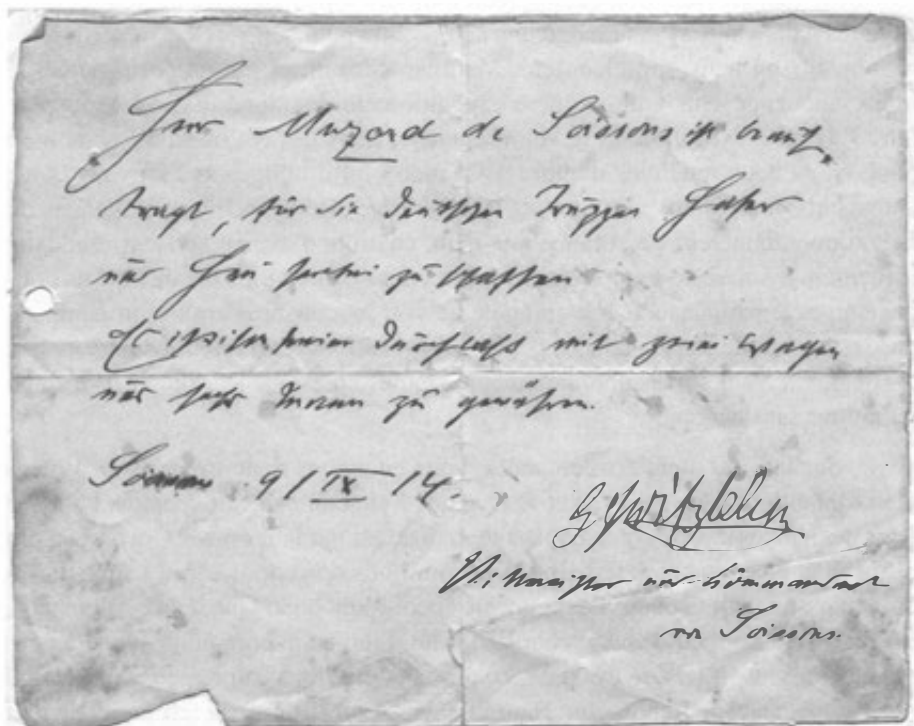 Herr Muzard de Soissons ist beauf-
tragt, für die deutschen Truppen Hafer
und Heu herbei zu schaffen
Es ist ihm Durchlass mit zwei Wagen
und sechs zu gewähren.
Soissons 9/IX 14.
Rittmeister und Kommandant
von Soissons.